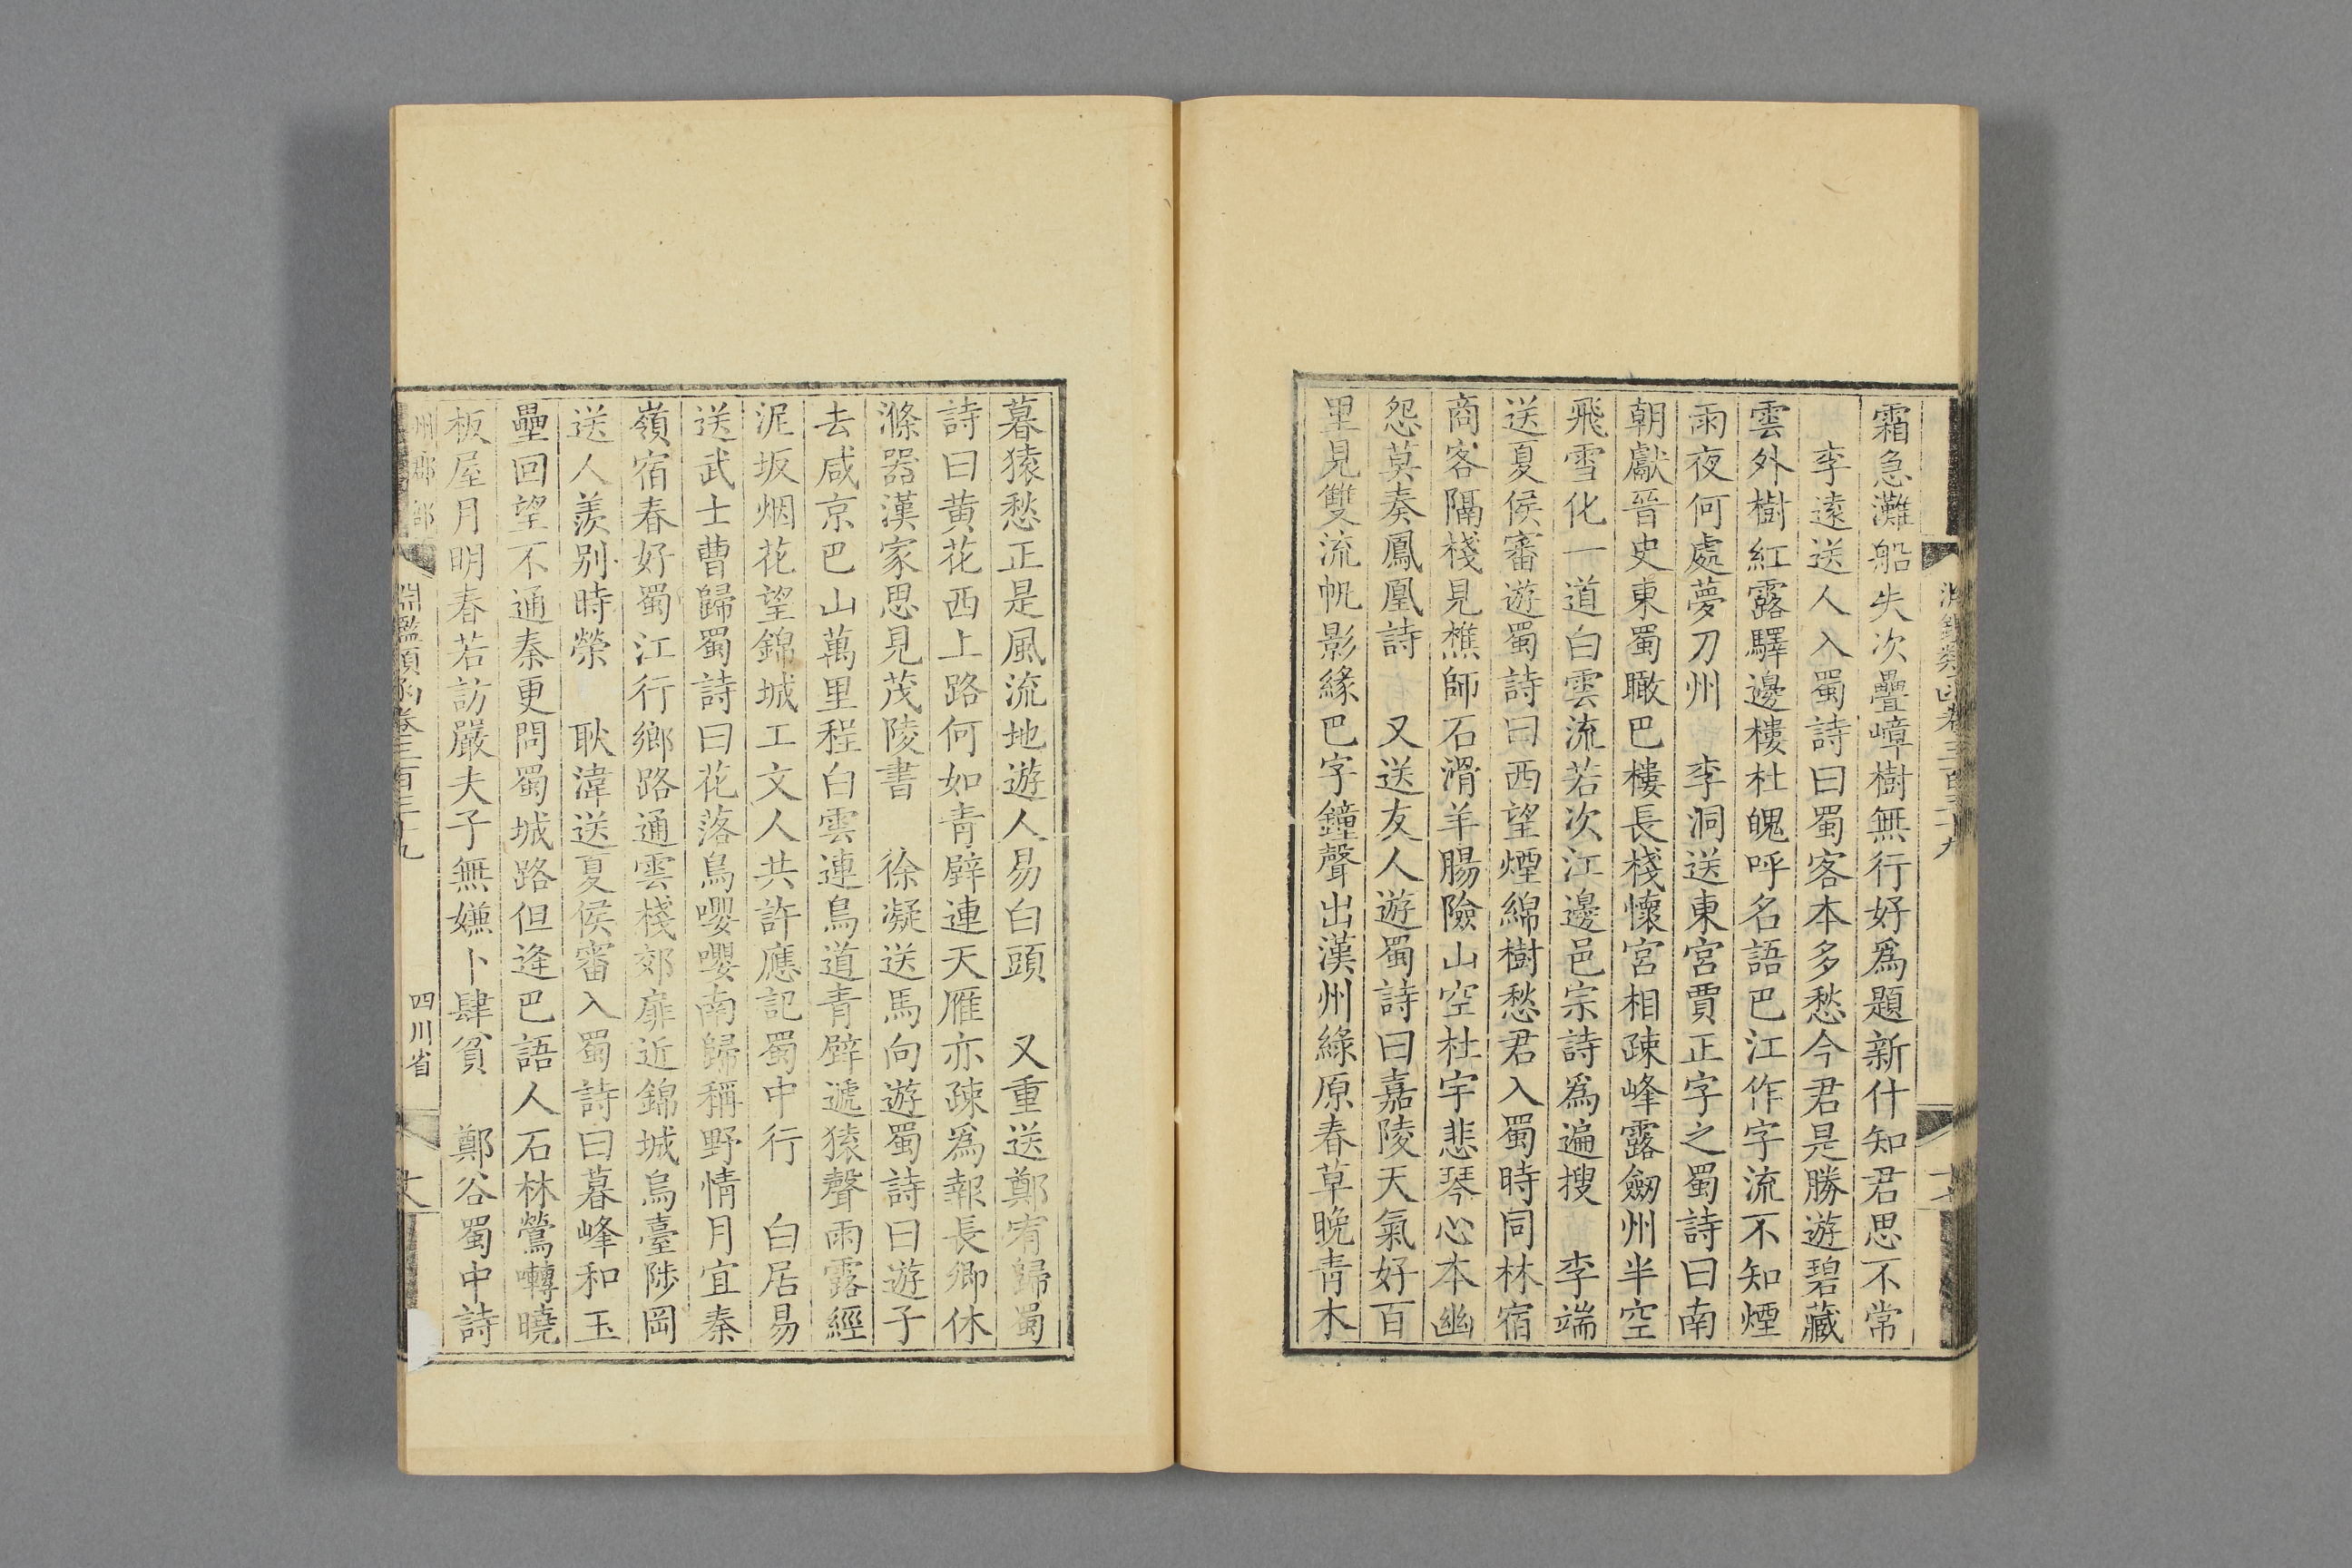 霜急灘船失次疊嶂樹無行好爲題新什知君思不常
李遠送人入蜀詩曰蜀客本多愁今君是勝遊碧藏
雲外樹紅露驛邊樓杜魄呼名語巴江作字流不知煙
雨夜何處夢刀州 李洞送東宮賈正字之蜀詩曰南
朝獻晉史東蜀瞰巴樓長棧懷宮相疎峰露劒州半空
飛雪化一道白雲流若次江邊邑宗詩爲遍搜 李端
送夏侯審遊蜀詩曰西望煙綿樹愁君入蜀時同林宿
商客隔棧見樵師石滑羊腸險山空杜宇悲琴心本幽
怨莫奏鳳凰詩 又送友人遊蜀詩曰嘉陵天氣好百
里見雙流帆影緣巴字鐘聲出漢州綠原春草晚青木
暮猿愁正是風流地遊人易白頭 又重送鄭宥歸蜀
詩曰黄花西上路何如青壁連天雁亦疎爲報長卿休
滌器漢家思見茂陵書 徐凝送馬向遊蜀詩曰遊子
去咸京巴山萬里程白雲連鳥道青壁遞猿聲雨露經
泥坂烟花望錦城工文人共許應記蜀中行 白居易
送武士曹歸蜀詩曰花落鳥嚶嚶南歸稱野情月宜秦
嶺宿春好蜀江行鄉路通雲棧郊扉近錦城烏臺陟岡
送人羨别時榮 耿湋送夏侯審入蜀詩曰暮峰和玉
壘回望不通秦更問蜀城路但逢巴語人石林鶯囀曉
板屋月明春若訪嚴夫子無嫌卜肆貧 鄭谷蜀中詩
州郡部 淵鑑類函卷三百三十九 四川省